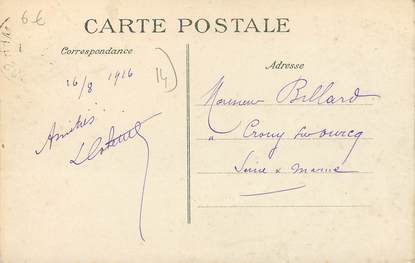 6€
CARTE POSTALE
Correspondance
Adresse
16/8 1916
14
Monsieur Billard
Amitiés
à Crouy sur Ourcq
Seine & Marne